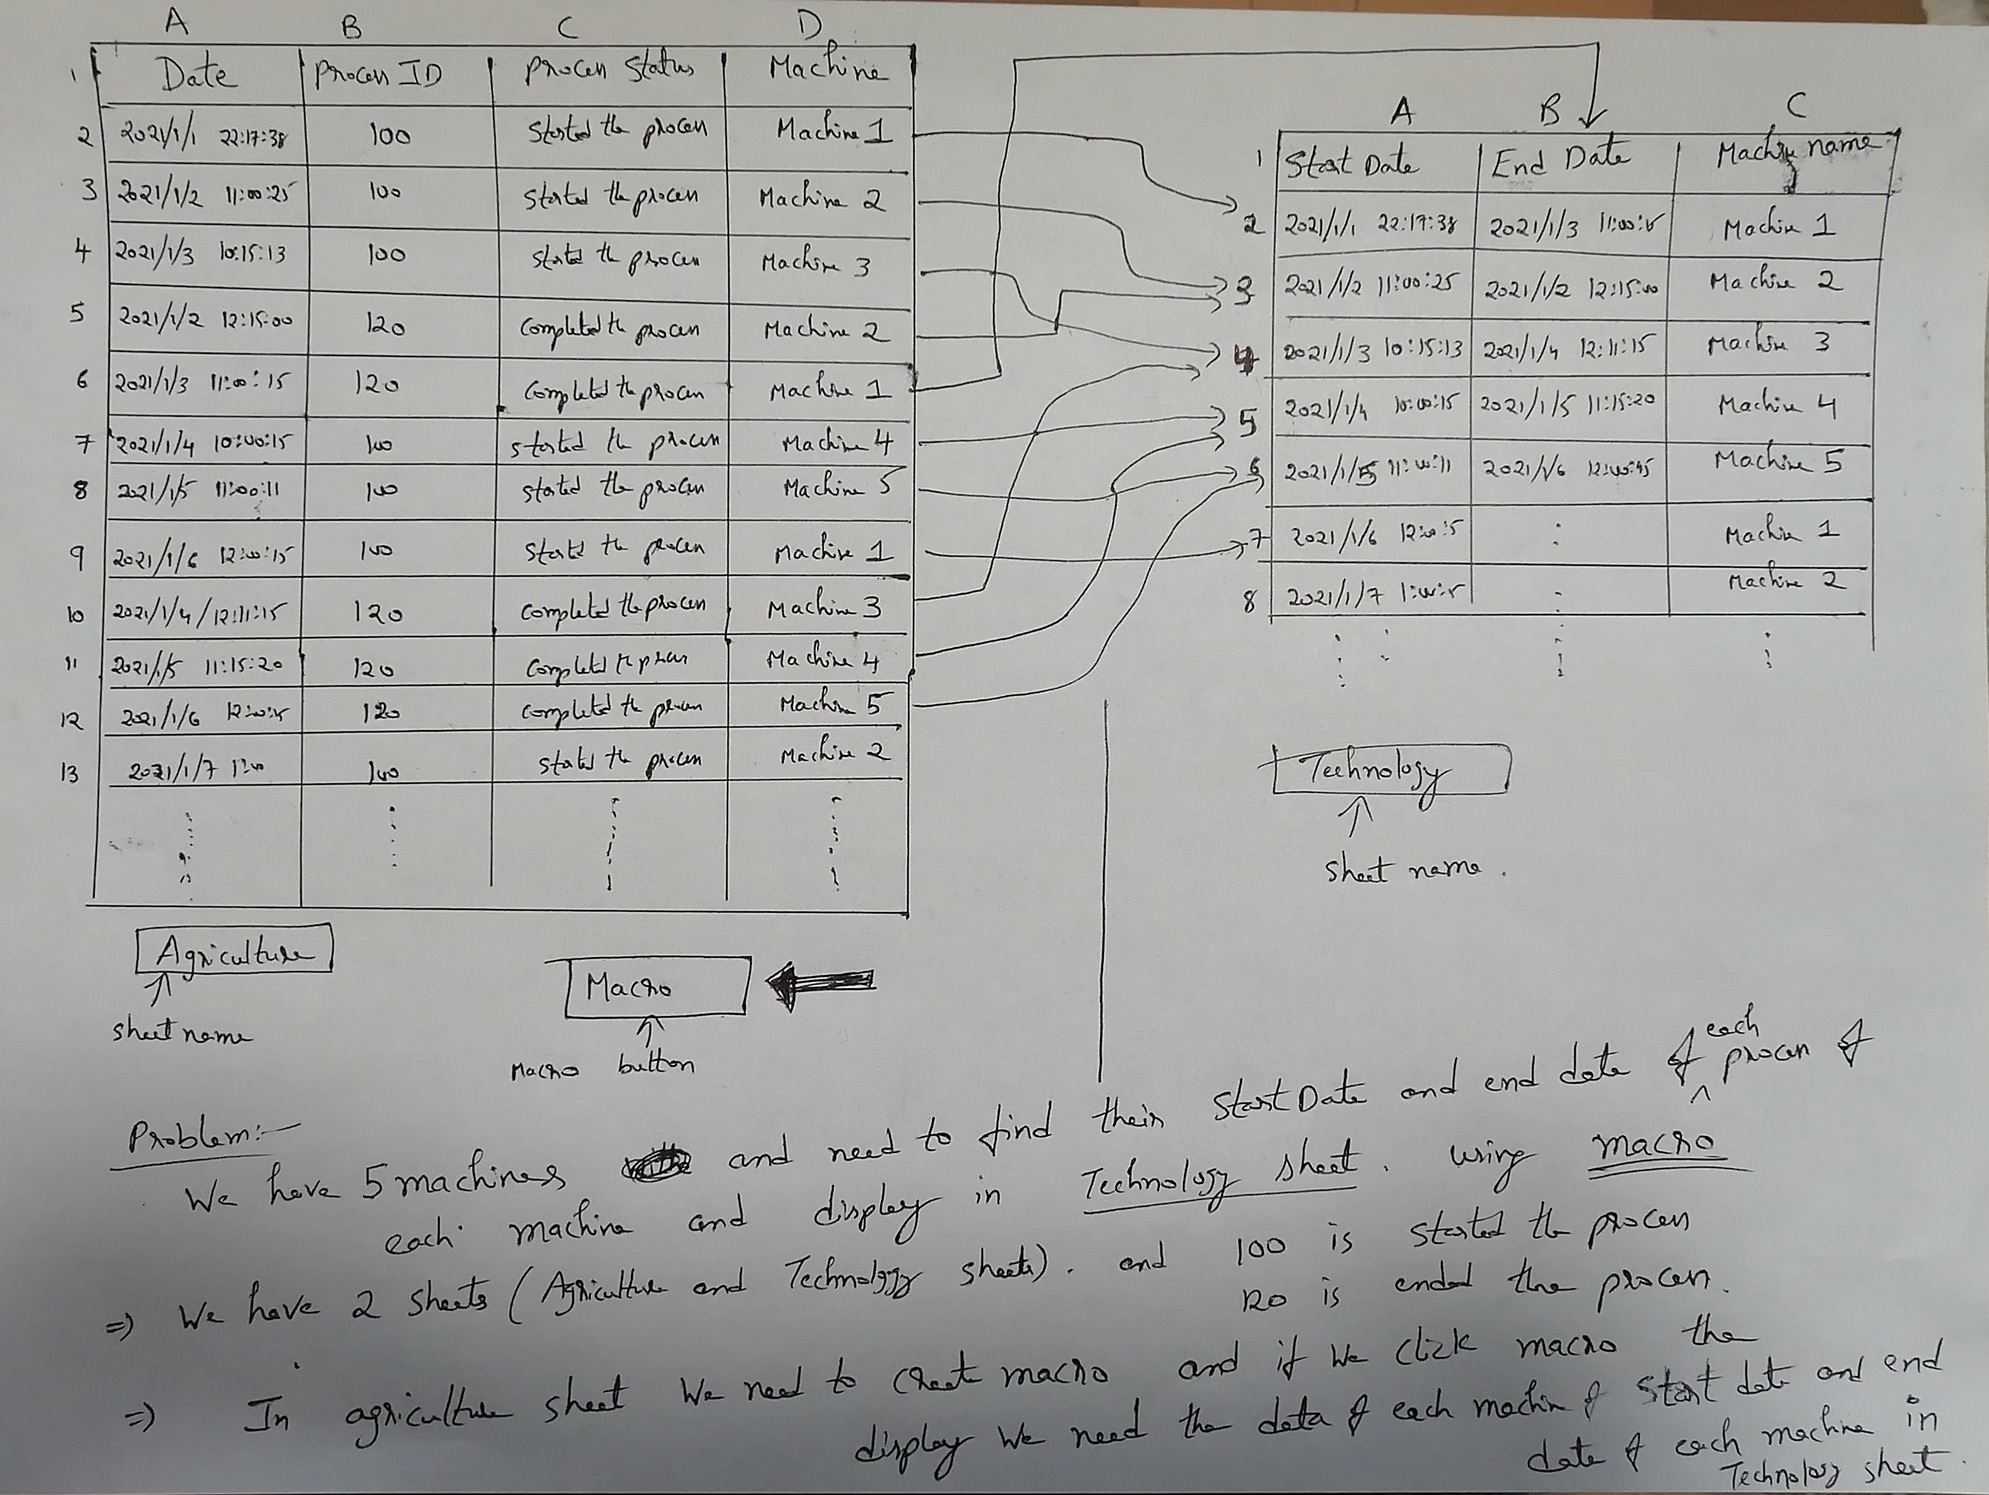 A B C D
1 Date Process ID Process Status Machine
2 2021/1/1 22:17:38 100 Started the process Machine 1
3 2021/1/2 11:00:25 100 started the process Machine 2
4 2021/1/3 10:15:13 100 started the process Machine 3
5 2021/1/2 12:15:00 120 Completed the process Machine 2
6 2021/1/3 11:00:15 120 Completed the process Machine 1
7 2021/1/4 10:00:15 100 started the process Machine 4
8 2021/1/5 11:00:11 100 started the process Machine 5
9 2021/1/6 12:00:15 100 started the process Machine 1
10 2021/1/4/12:11:15 120 Completed the process Machine 3
11 2021/1/5 11:15:20 120 Completed the process Machine 4
12 2021/1/6 120 Completed the process Machine 5
13 2021/1/7 1:00 100 started the process Machine 2
A B C
1 Start Date End Date Machine name
2 2021/1/1 22:17:38 2021/1/3 Machine 1
3 2021/1/2 11:00:25 2021/1/2 12:15:00 Machine 2
4 2021/1/3 10:15:13 2021/1/4 12:11:15 Machine 3
5 2021/1/4 10:00:15 2021/1/5 11:15:20 Machine 4
6 2021/1/5 11:00:11 2021/1/6 Machine 5
7 2021/1/6 Machine 1
8 2021/1/7 Machine 2
Technology
sheet name.
Agriculture
sheet name
Macro
Macro button
Problem:-
We have 5 machines and need to find their Start Date and end date of each process of
each machine and display in Technology sheet. using macro
=> We have 2 sheets (Agriculture and Technology sheets). and 100 is started the process
120 is ended the process.
=> In agriculture sheet We need to creat macro and if we click macro the
display we need the data of each machine of start date and end
date of each machine in
Technology sheet.